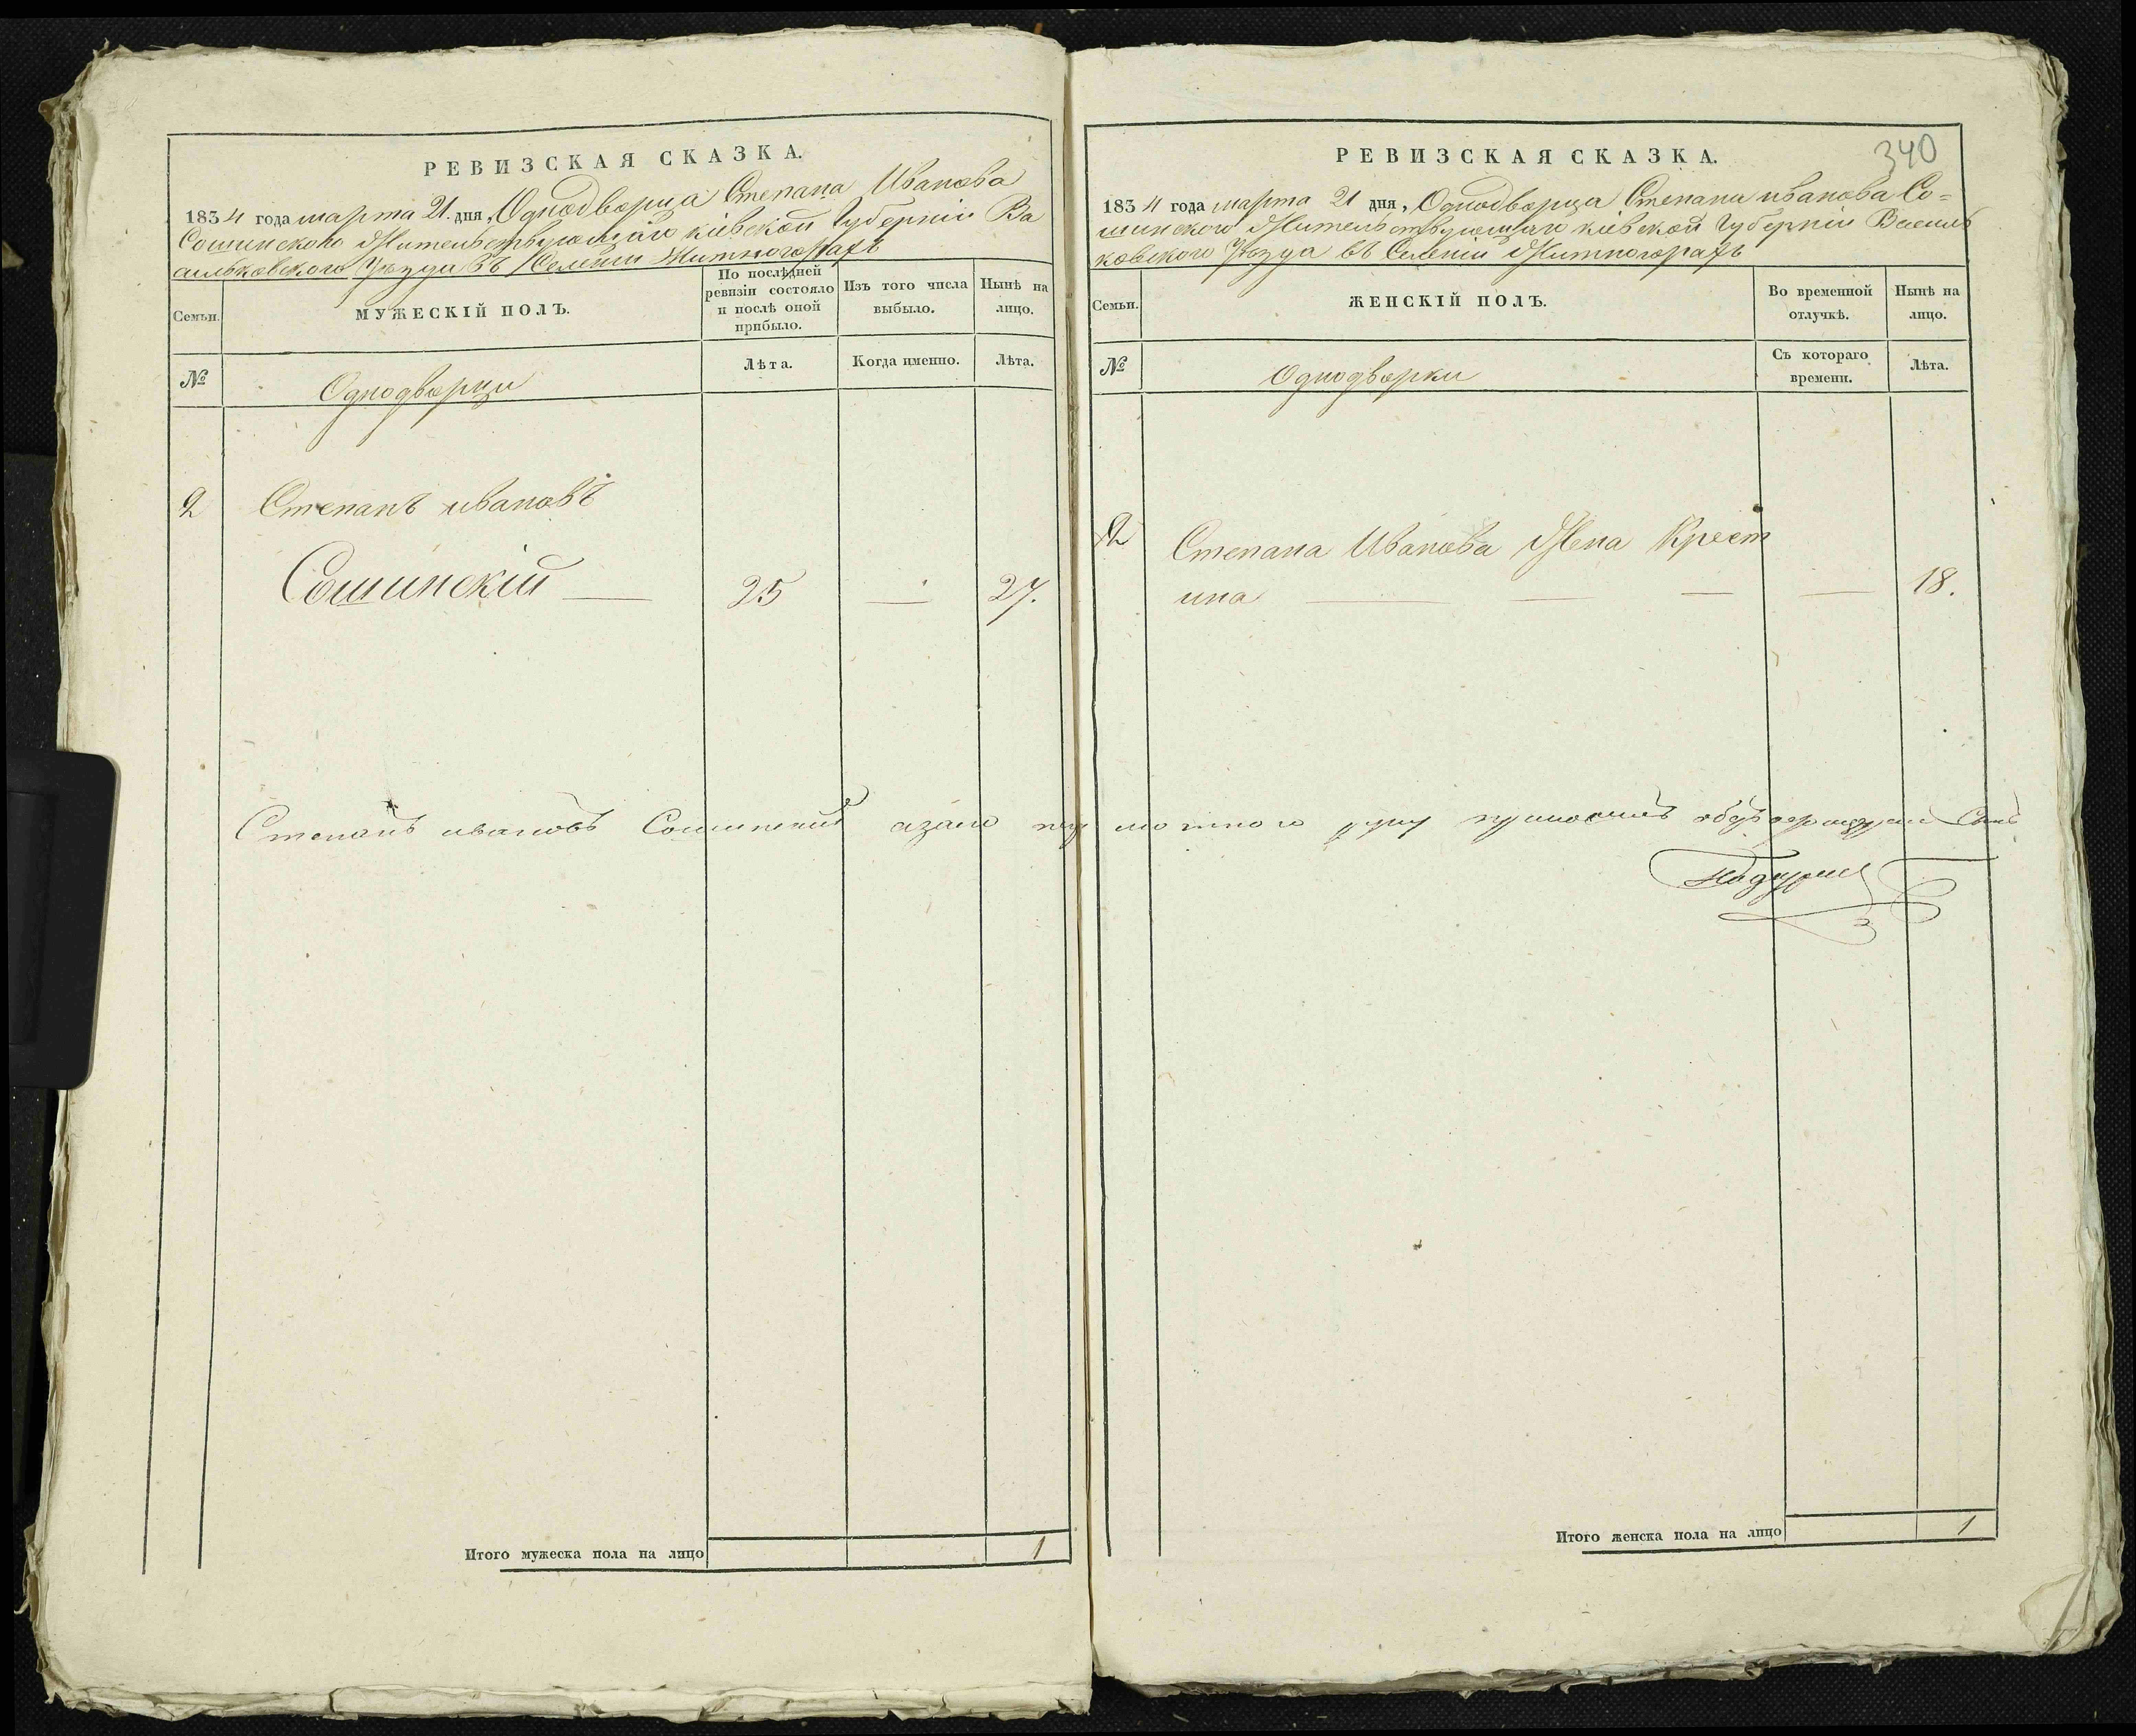 РЕВИЗСКАЯ СКАЗКА.
1834 года марта 21. дня, Однодворца Степана Иванова
Сошинского Жительствующаго кіевской Губерніи Ва
сильковского Уѣзда Въ Селеніи Житногорахъ
Семьи.
МУЖЕСКІЙ ПОЛЪ.
По послѣдней
ревизіи состояло
и послѣ оной
прибыло.
Изъ того числа
выбыло.
Нынѣ на
лицо.
№
Однодворци
Лѣта.
Когда именно.
Лѣта.
2 Степанъ ивановъ
Сошинскій — 25 — 27.
Степанъ ивановъ Сошинский
Итого мужеска пола на лицо 1
340
РЕВИЗСКАЯ СКАЗКА.
1834 года марта 21 дня, Однодворца Степана иванова Со=
шинского Жительствующаго кіевской Губерніи Василь
ковского Уѣзда въ Селеніи Житногорахъ
Семьи.
ЖЕНСКІЙ ПОЛЪ.
Во временной
отлучкѣ.
Нынѣ на
лицо.
№
Однодворки
Съ котораго
времени.
Лѣта.
2 Степана Иванова Жена Крест
ина — — — — 18.
Итого женска пола на лицо 1